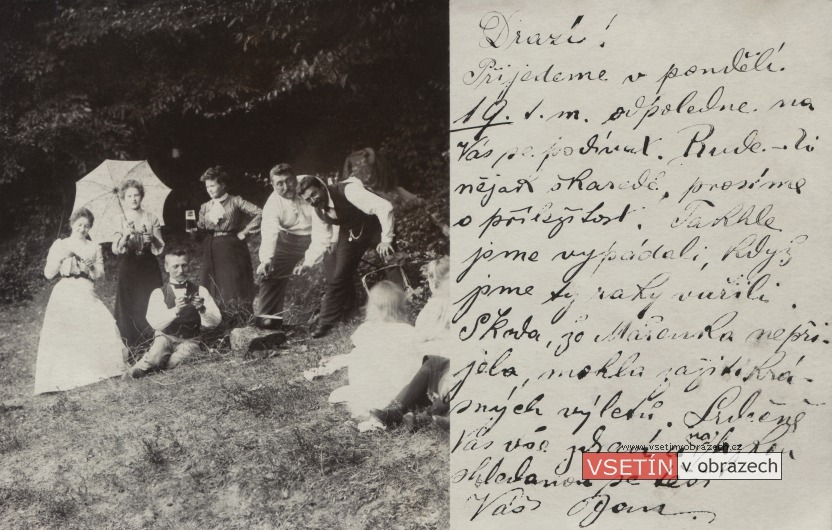 Drazí!
Přijedeme v pondělí
19. t. m. odpoledne na
Vás se podívat. Bude-li
nějak škaredě, prosíme
o příležitost. Takhle
jsme vypadali, když
jsme ty raky vařili.
Škoda, že Mařenka nepři-
jela, mohla zajíti krá-
sných výletů. Srdečně
Vás vše
www.vsetinvobrazech.cz
VSETÍN v obrazech
shledanou se těší
Váš Jan.